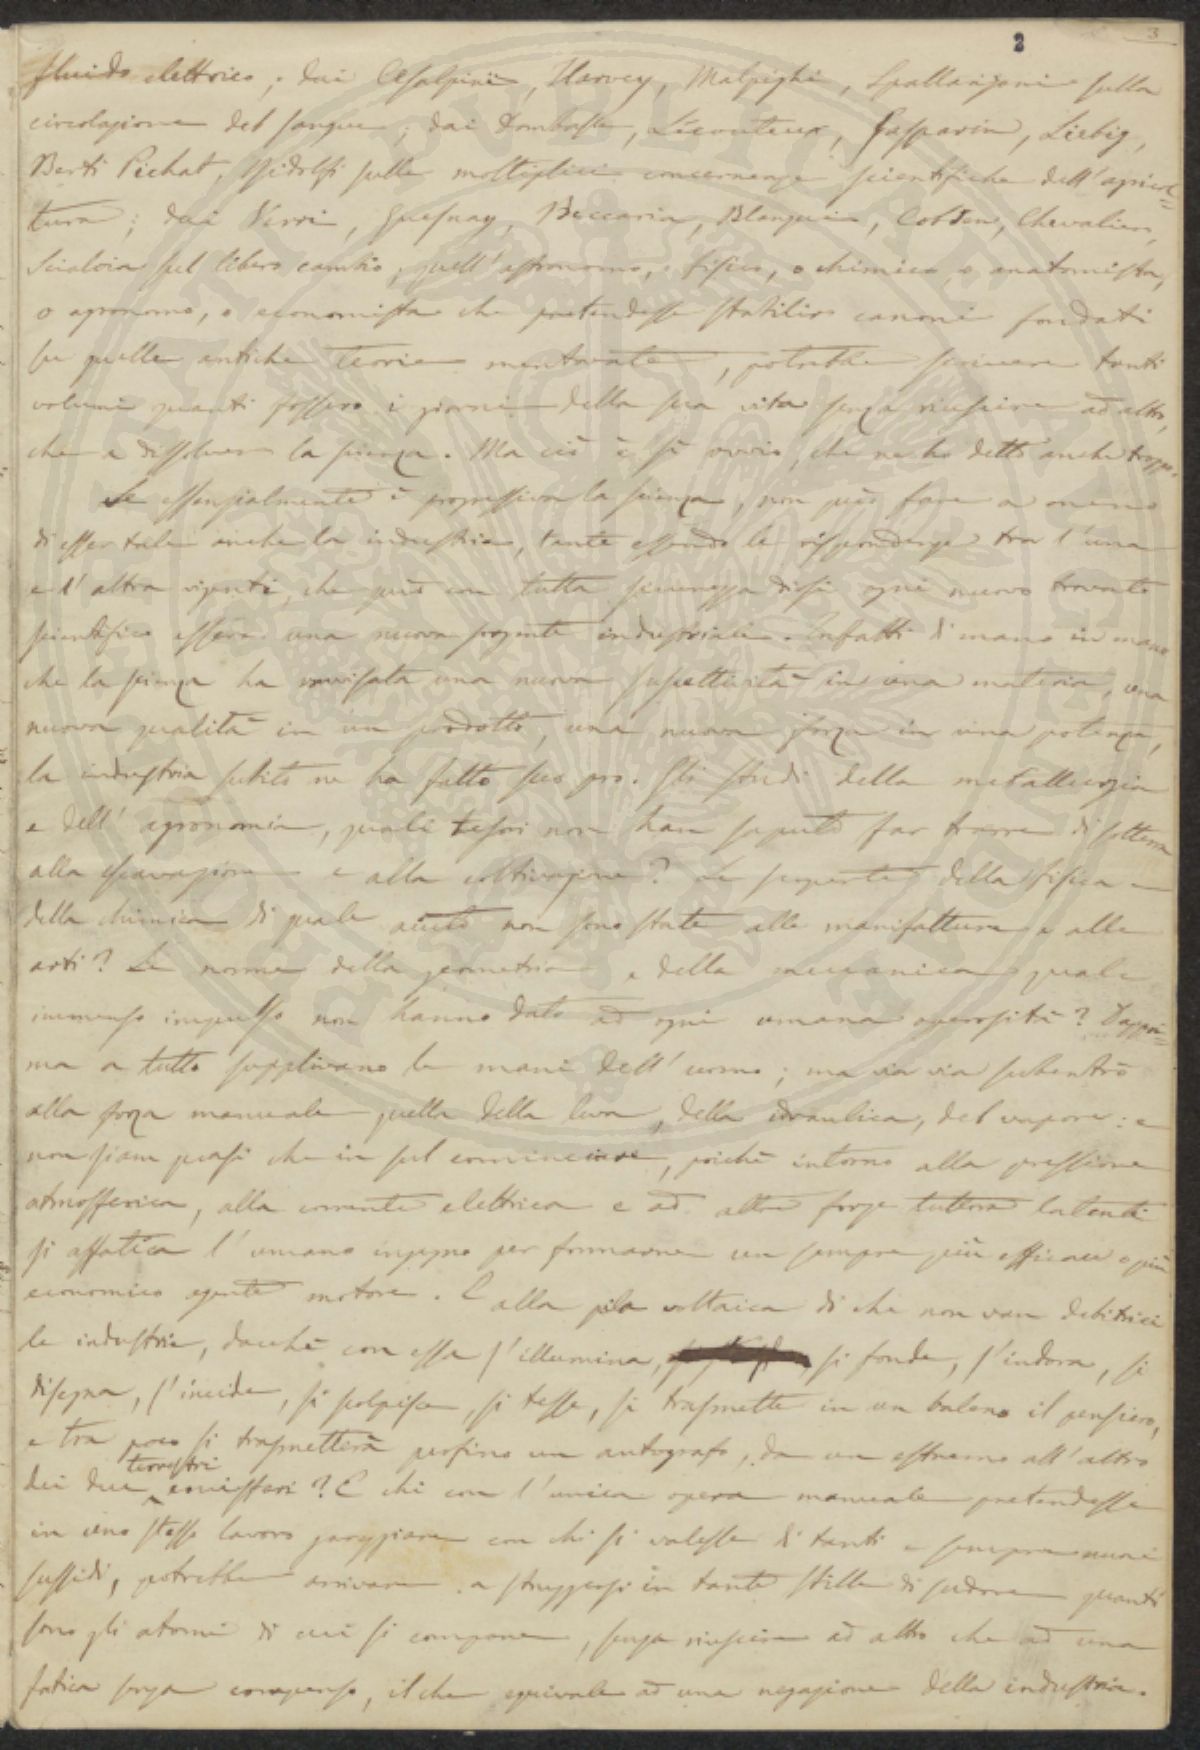 2 3
fluido elettrico; dai Cesalpini, Harvey, Malpighi, Spallanzani sulla
circolazione del sangue; dai Dombasle, Lecouteux, Gasparin, Liebig,
Berti Pichat, Ridolfi sulle moltiplici concernenze scientifiche dell'agricol=
tura; dai Verri, Quesnay, Beccaria, Blanqui, Cobden, Chevalier,
Scialoia sul libero cambio, quell'astronomo, o fisico, o chimico, o anatomista,
o agronomo, o economista che pretendesse stabilire canoni fondati
su quelle antiche teorie mentovate, potrebbe scrivere tanti
volumi quanti fossero i giorni della sua vita senza riuscire ad altro,
che a dissolvere la scienza. Ma ciò è sì ovvio, che ne ho detto anche troppo.
Se essenzialmente è progressiva la scienza, non può fare a meno
di esser tale anche la industria, tante essendo le rispondenze tra l'una
e l'altra vigenti, che può con tutta sicurezza dirsi ogni nuovo trovato
scientifico essere una nuova sorgente industriale. Infatti di mano in mano
che la scienza ha ravvisata una nuova suscettività in una materia, una
nuova qualità in un prodotto, una nuova forza in una potenza,
la industria subito ne ha fatto suo pro. Gli studi della metallurgia
e dell'agronomia, quali tesori non han saputo far trarre di sotterra
alla escavazione e alla coltivazione? Le scoperte della fisica e
della chimica di quale aiuto non sono state alle manifatture e alle
arti? Le norme della geometria e della meccanica quale
immenso impulso non hanno dato ad ogni umana operosità? Dappri=
ma a tutto supplivano le mani dell'uomo; ma via via subentrò
alla forza manuale quella della leva, della idraulica, del vapore: e
non siam quasi che in sul cominciare, poichè intorno alla pressione
atmosferica, alla corrente elettrica e ad altre forze tuttora latenti
si affatica l'umano ingegno per formarne un sempre più efficace e più
economico agente motore. E alla pila voltaica di che non van debitrici
le industrie, dacchè con essa s'illumina, si fonde, s'indora, si
disegna, s'incide, si scolpisce, si tesse, si trasmette in un baleno il pensiero,
e tra poco si trasmetterà perfino un autografo, da un estremo all'altro
dei due terrestri emisferi? E chi con l'unica opera manuale pretendesse
in uno stesso lavoro gareggiare con chi si valesse di tanti e sempre nuovi
sussidi, potrebbe arrivare a struggersi in tante stille di sudore quanti
sono gli atomi di cui si compone, senza riuscire ad altro che ad una
fatica senza compenso, il che equivale ad una negazione della industria.